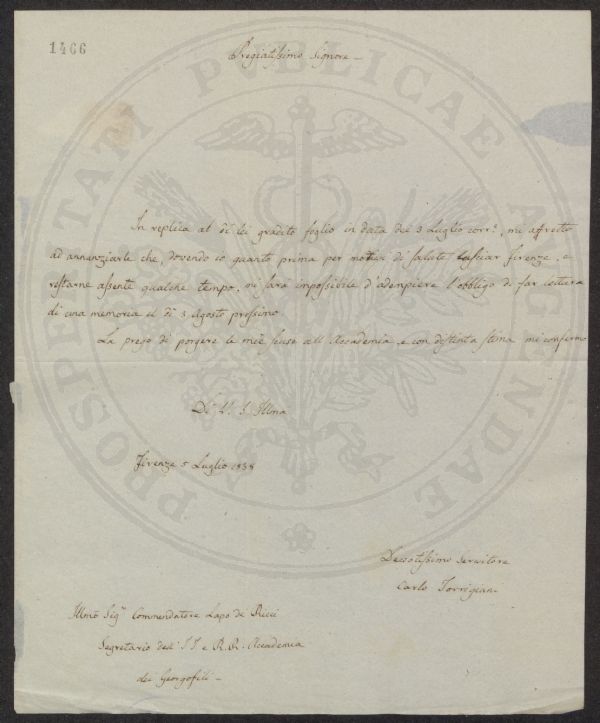 1466
Pregiatissimo Signore -
In replica al di lei gradito foglio in data dei 3 Luglio corr.e, mi affretto
ad annunziarle che, dovendo io quanto prima per motivi di salute lasciar Firenze, e
restarne assente qualche tempo, mi sarà impossibile d'adempiere l'obbligo di far lettura
di una memoria il dì 3 Agosto prossimo.
La prego di porgere le mie scuse all'Accademia, e con distinta stima mi confermo
Di V. S. Illma
Firenze 5 Luglio 1838
Devotissimo servitore
Carlo Torrigiani
Illmo Sigre Commendatore Lapo de Ricci
Segretario dell' I. e R. Accademia
dei Georgofili -
PROSPERITATI PUBLICAE AUGENDAE